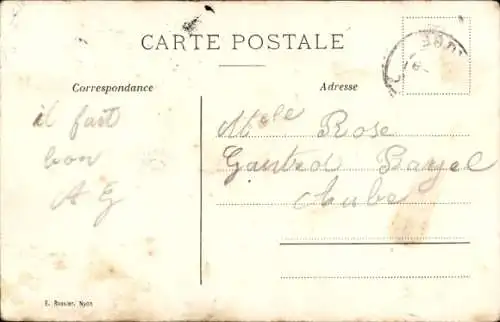 CARTE POSTALE
Correspondance
Adresse
il fait
bon
A G
Melle Rose
Gautrod Bayel
Aube
E. Roscier, Nyon